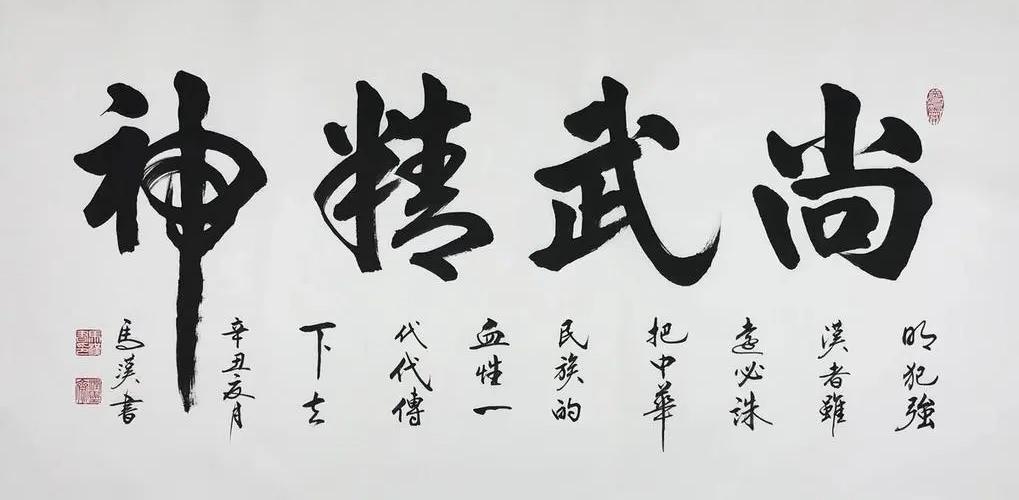 尚武精神
明犯強
漢者雖
遠必誅
把中華
民族的
血性一
代代傳
下去
辛丑夏月
馬漢書